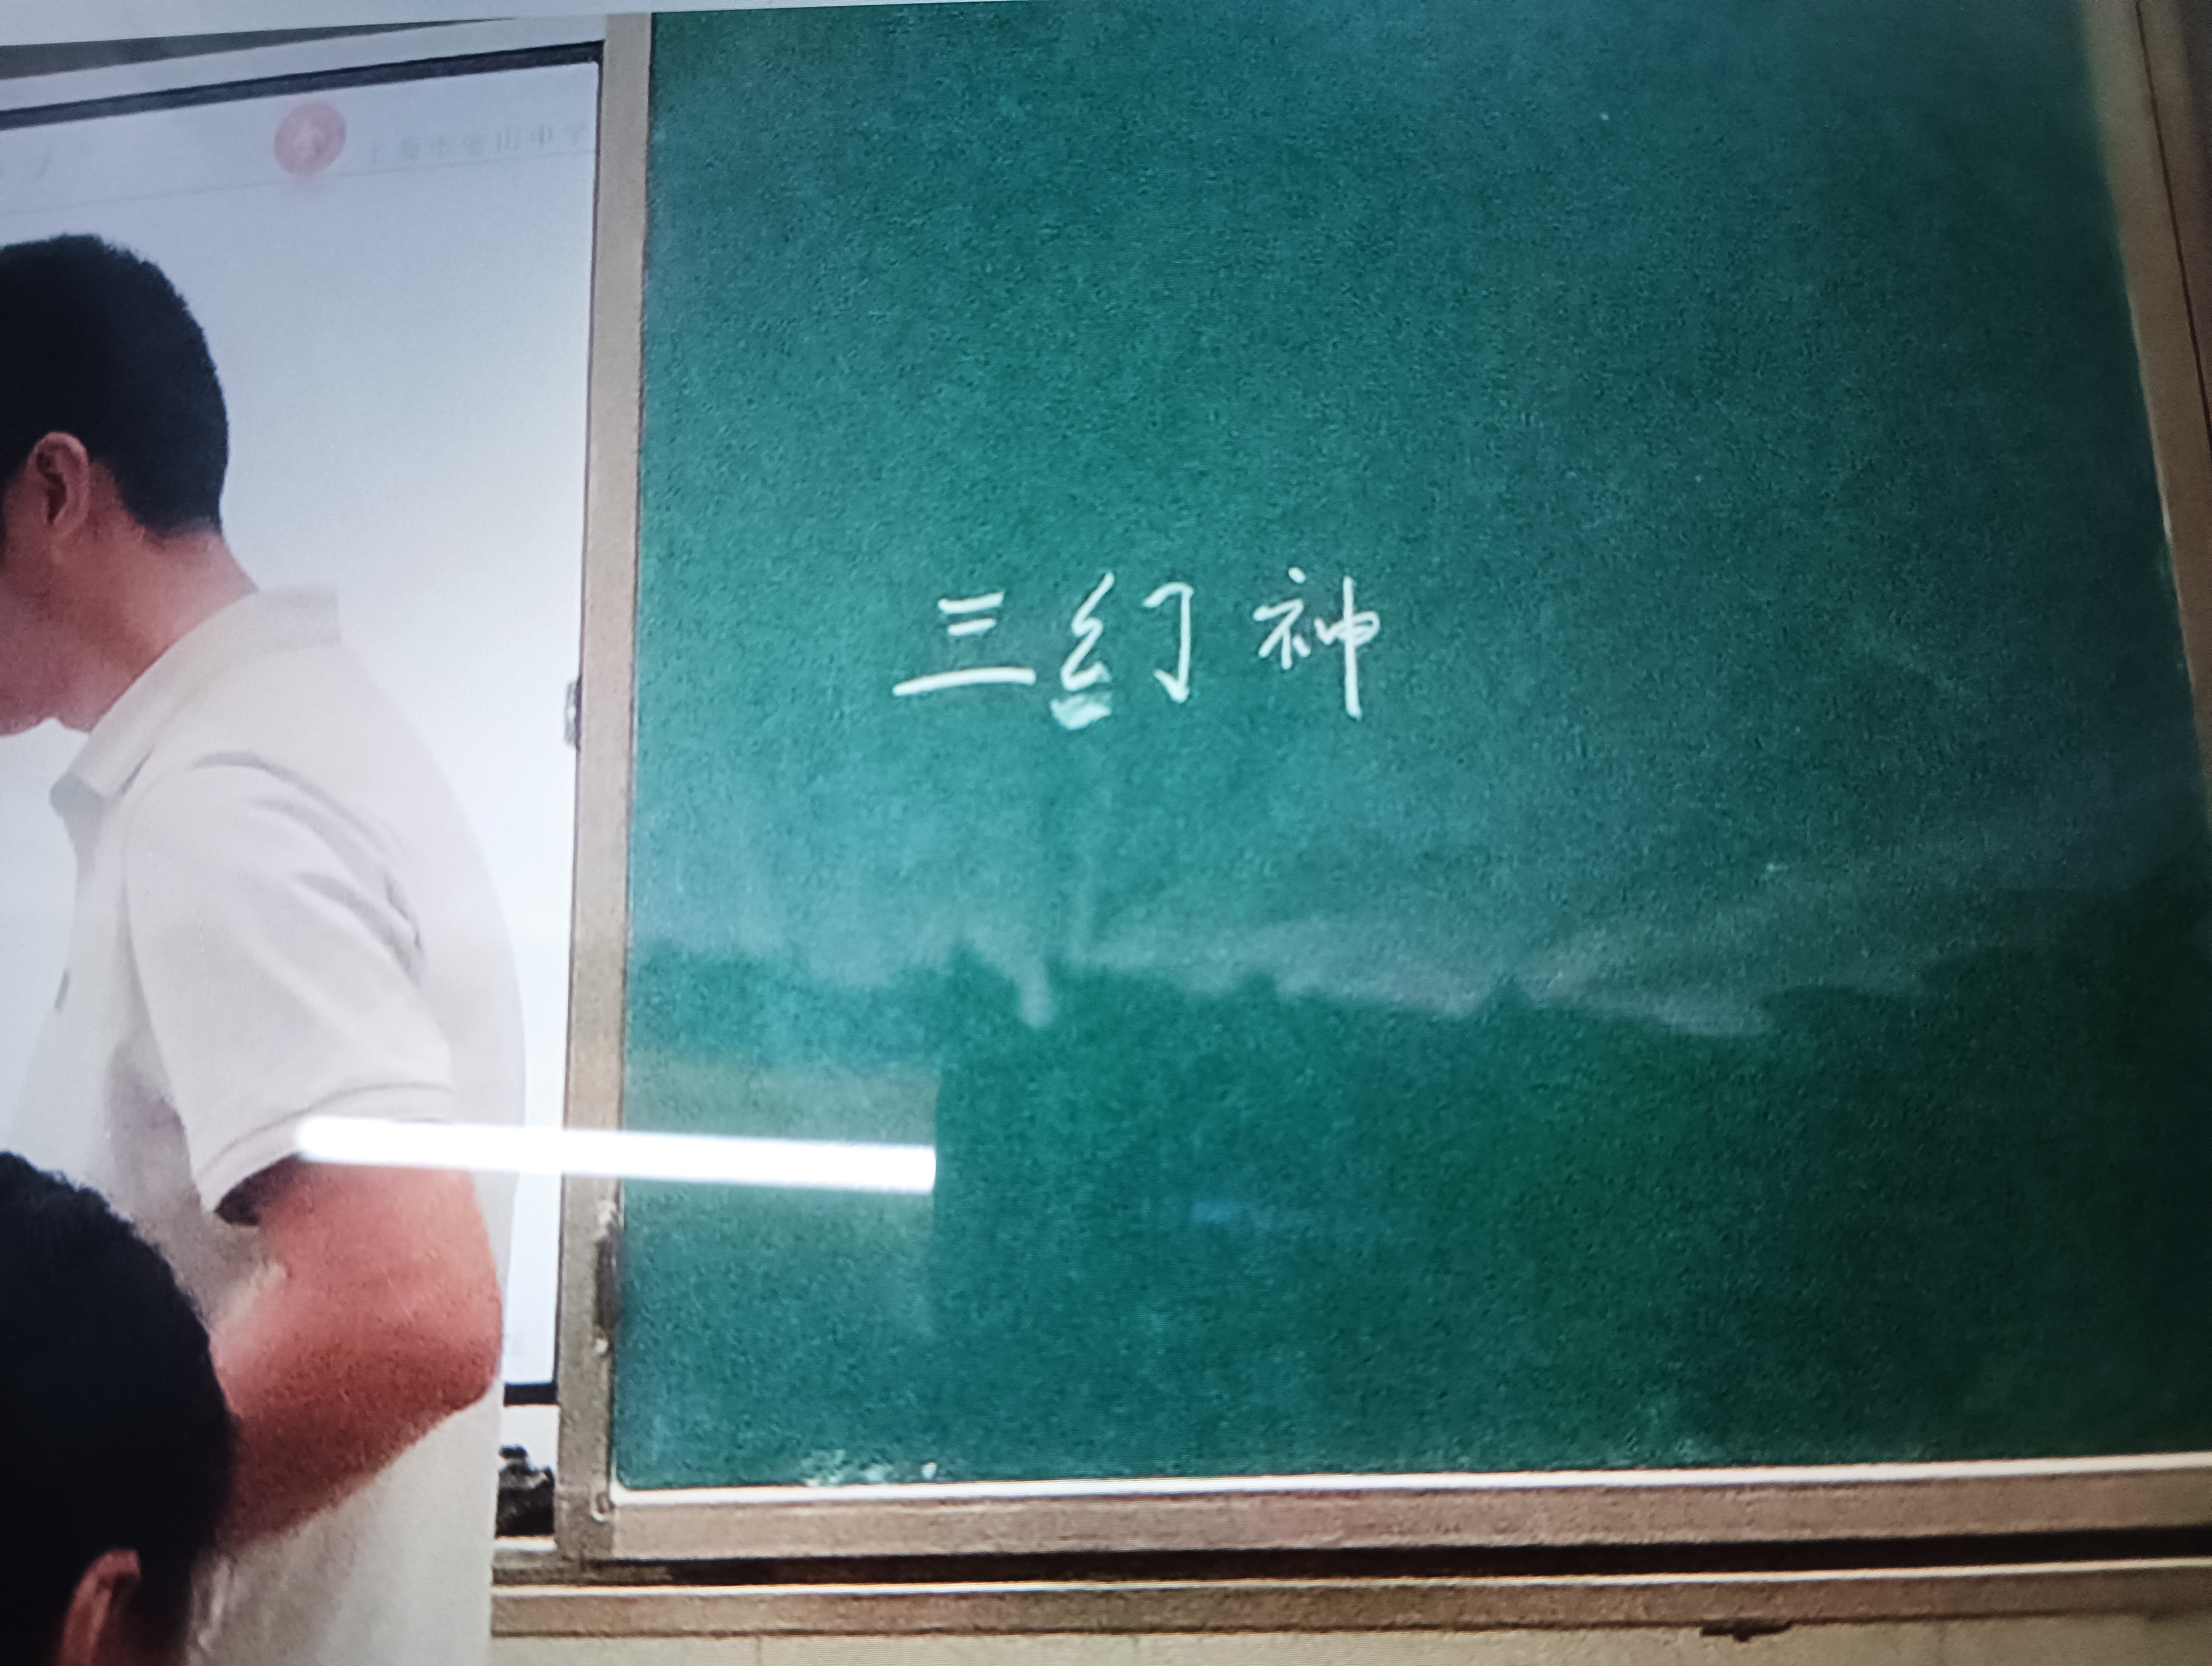 上海市金山中学
三幻神